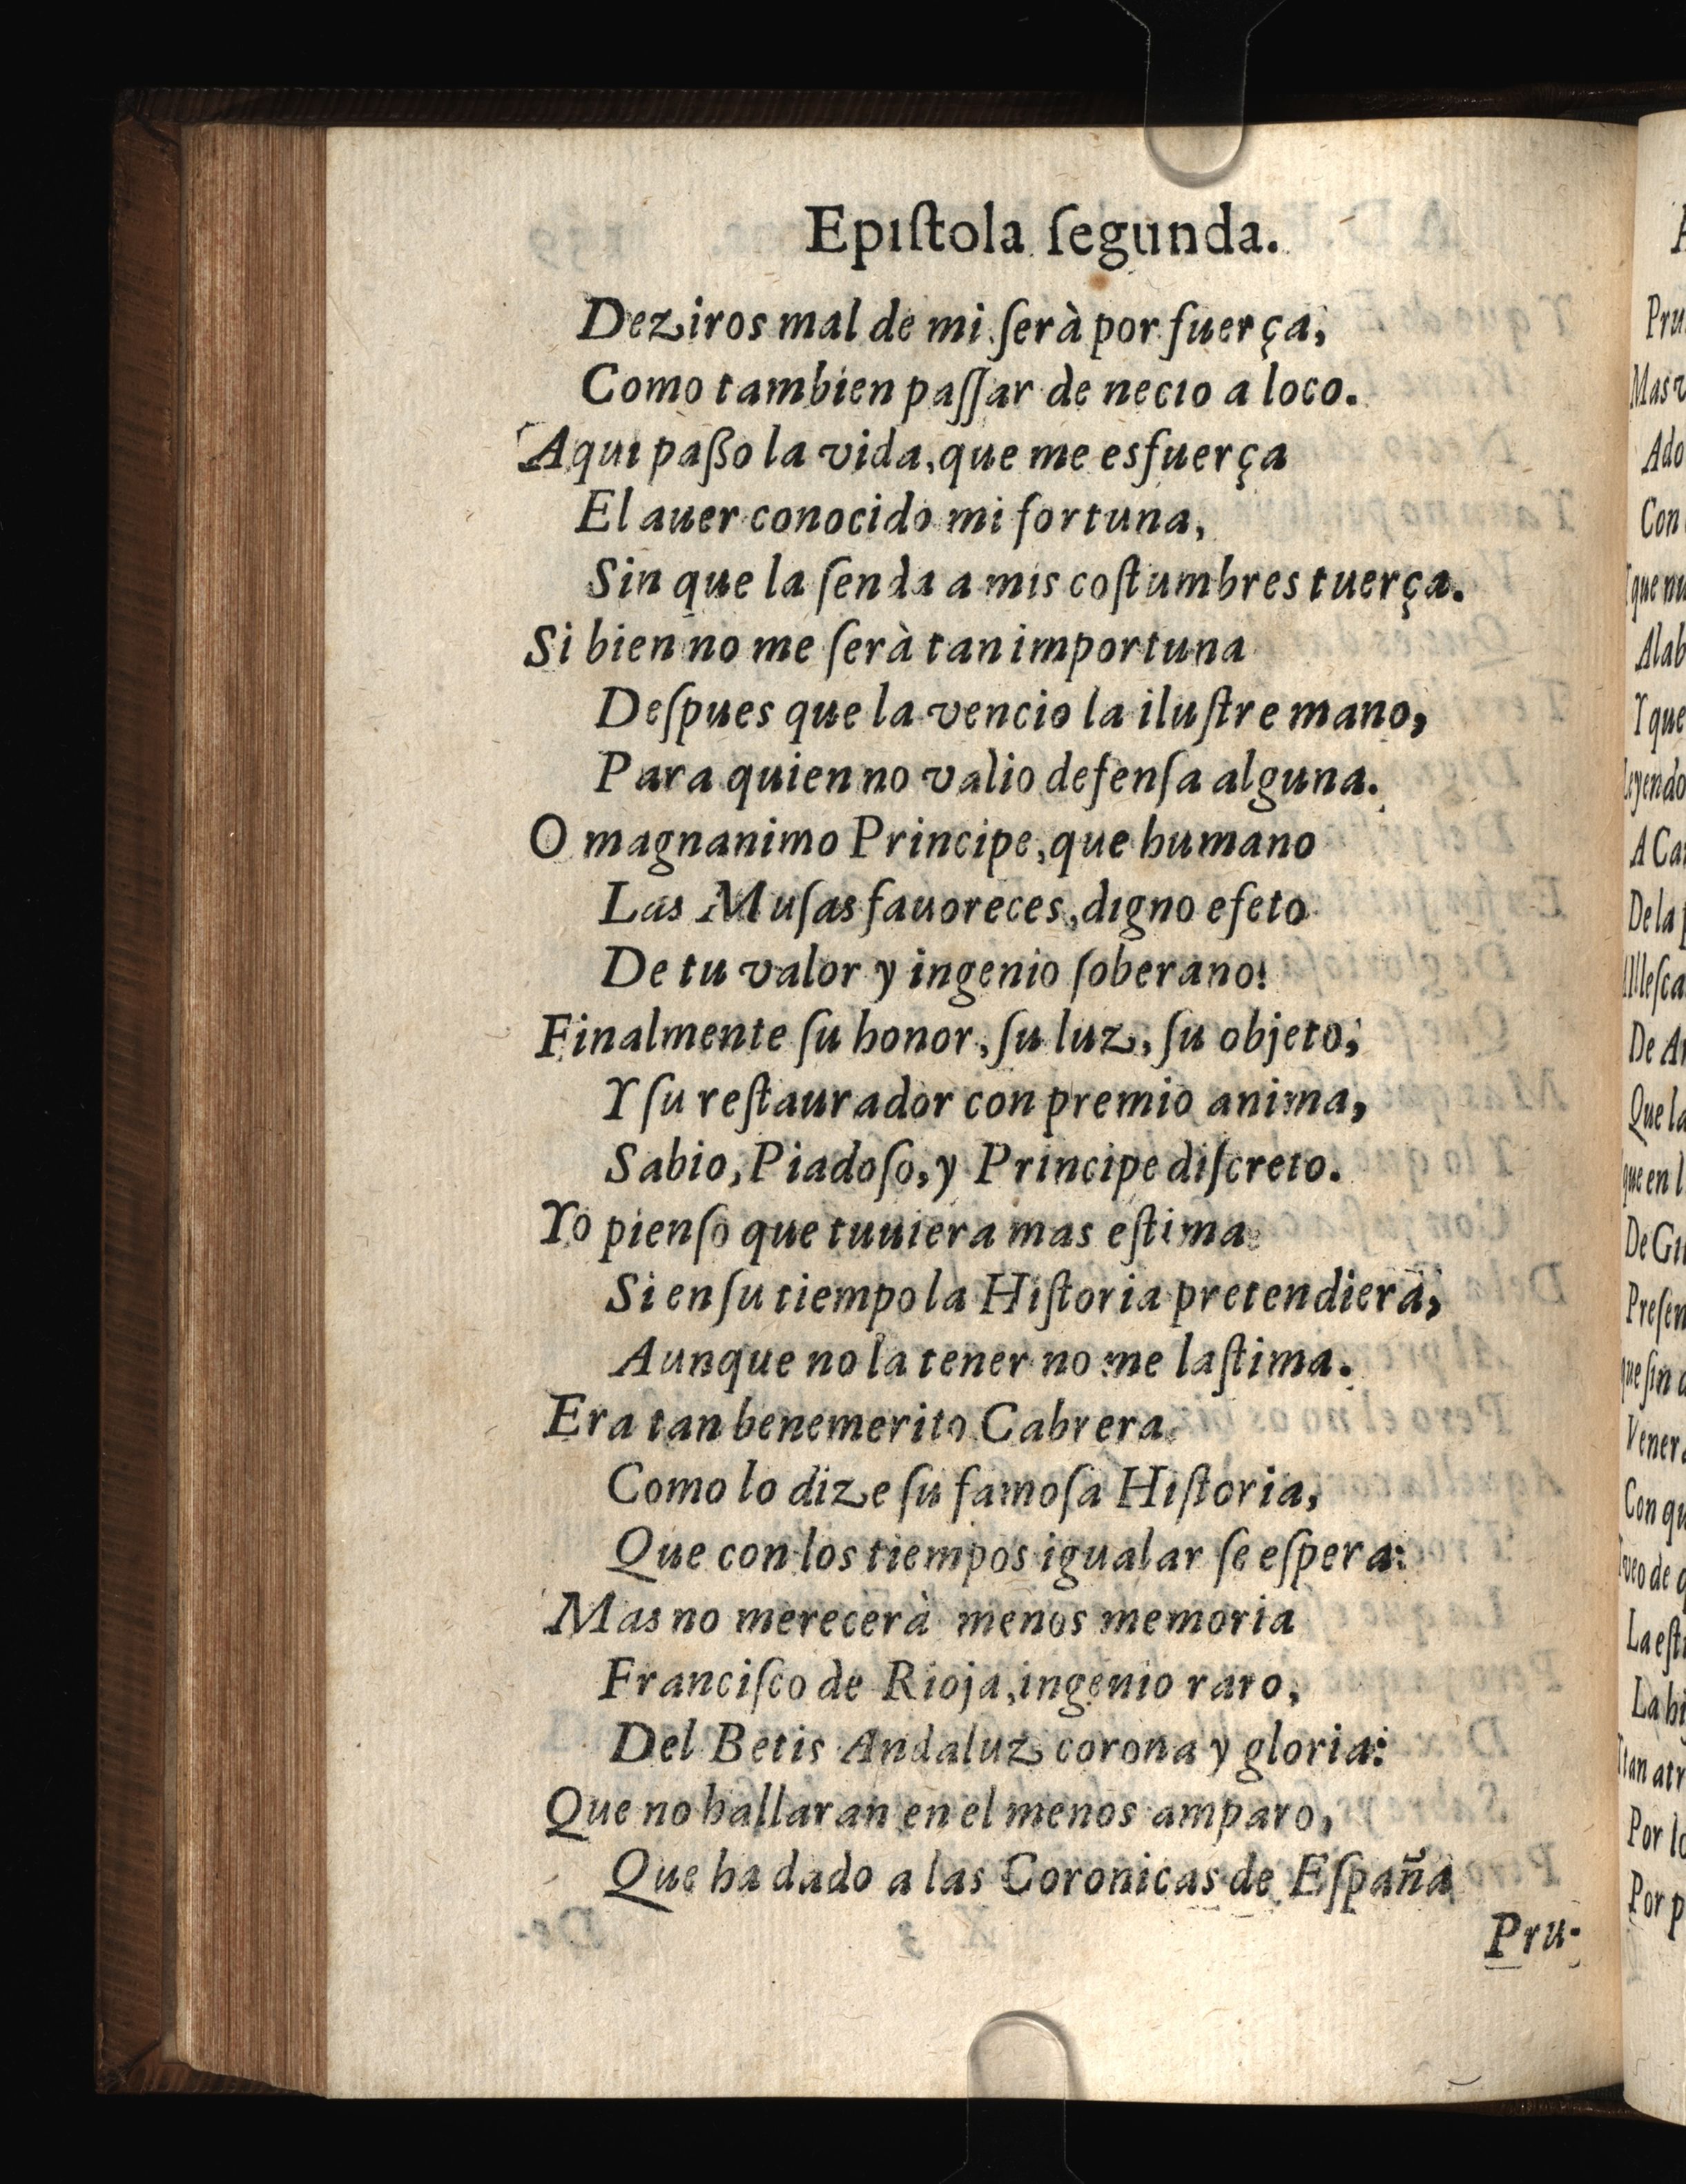 Epiſtola ſegunda.
Deziros mal de mi ſerà por fuerça,
Como tambien paſſar de necio a loco.
Aqui paßo la vida, que me esfuerça
El auer conocido mi fortuna,
Sin que la ſenda a mis coſtumbres tuerça.
Si bien no me ſerà tan importuna
Deſpues que la vencio la iluſtre mano,
Para quien no valio defenſa alguna.
O magnanimo Principe, que humano
Las Muſas fauoreces, digno efeto
De tu valor y ingenio ſoberano!
Finalmente ſu honor, ſu luz, ſu objeto,
Y ſu reſtaurador con premio anima,
Sabio, Piadoſo, y Principe diſcreto.
Yo pienſo que tuuiera mas eſtima
Si en ſu tiempo la Hiſtoria pretendiera,
Aunque no la tener no me laſtima.
Era tan benemerito Cabrera
Como lo dize ſu famoſa Hiſtoria,
Que con los tiempos igualar ſe eſpera:
Mas no merecerà menos memoria
Franciſco de Rioja, ingenio raro,
Del Betis Andaluz corona y gloria:
Que no hallaran en el menos amparo,
Que ha dado a las Coronicas de Eſpaña
Pru-